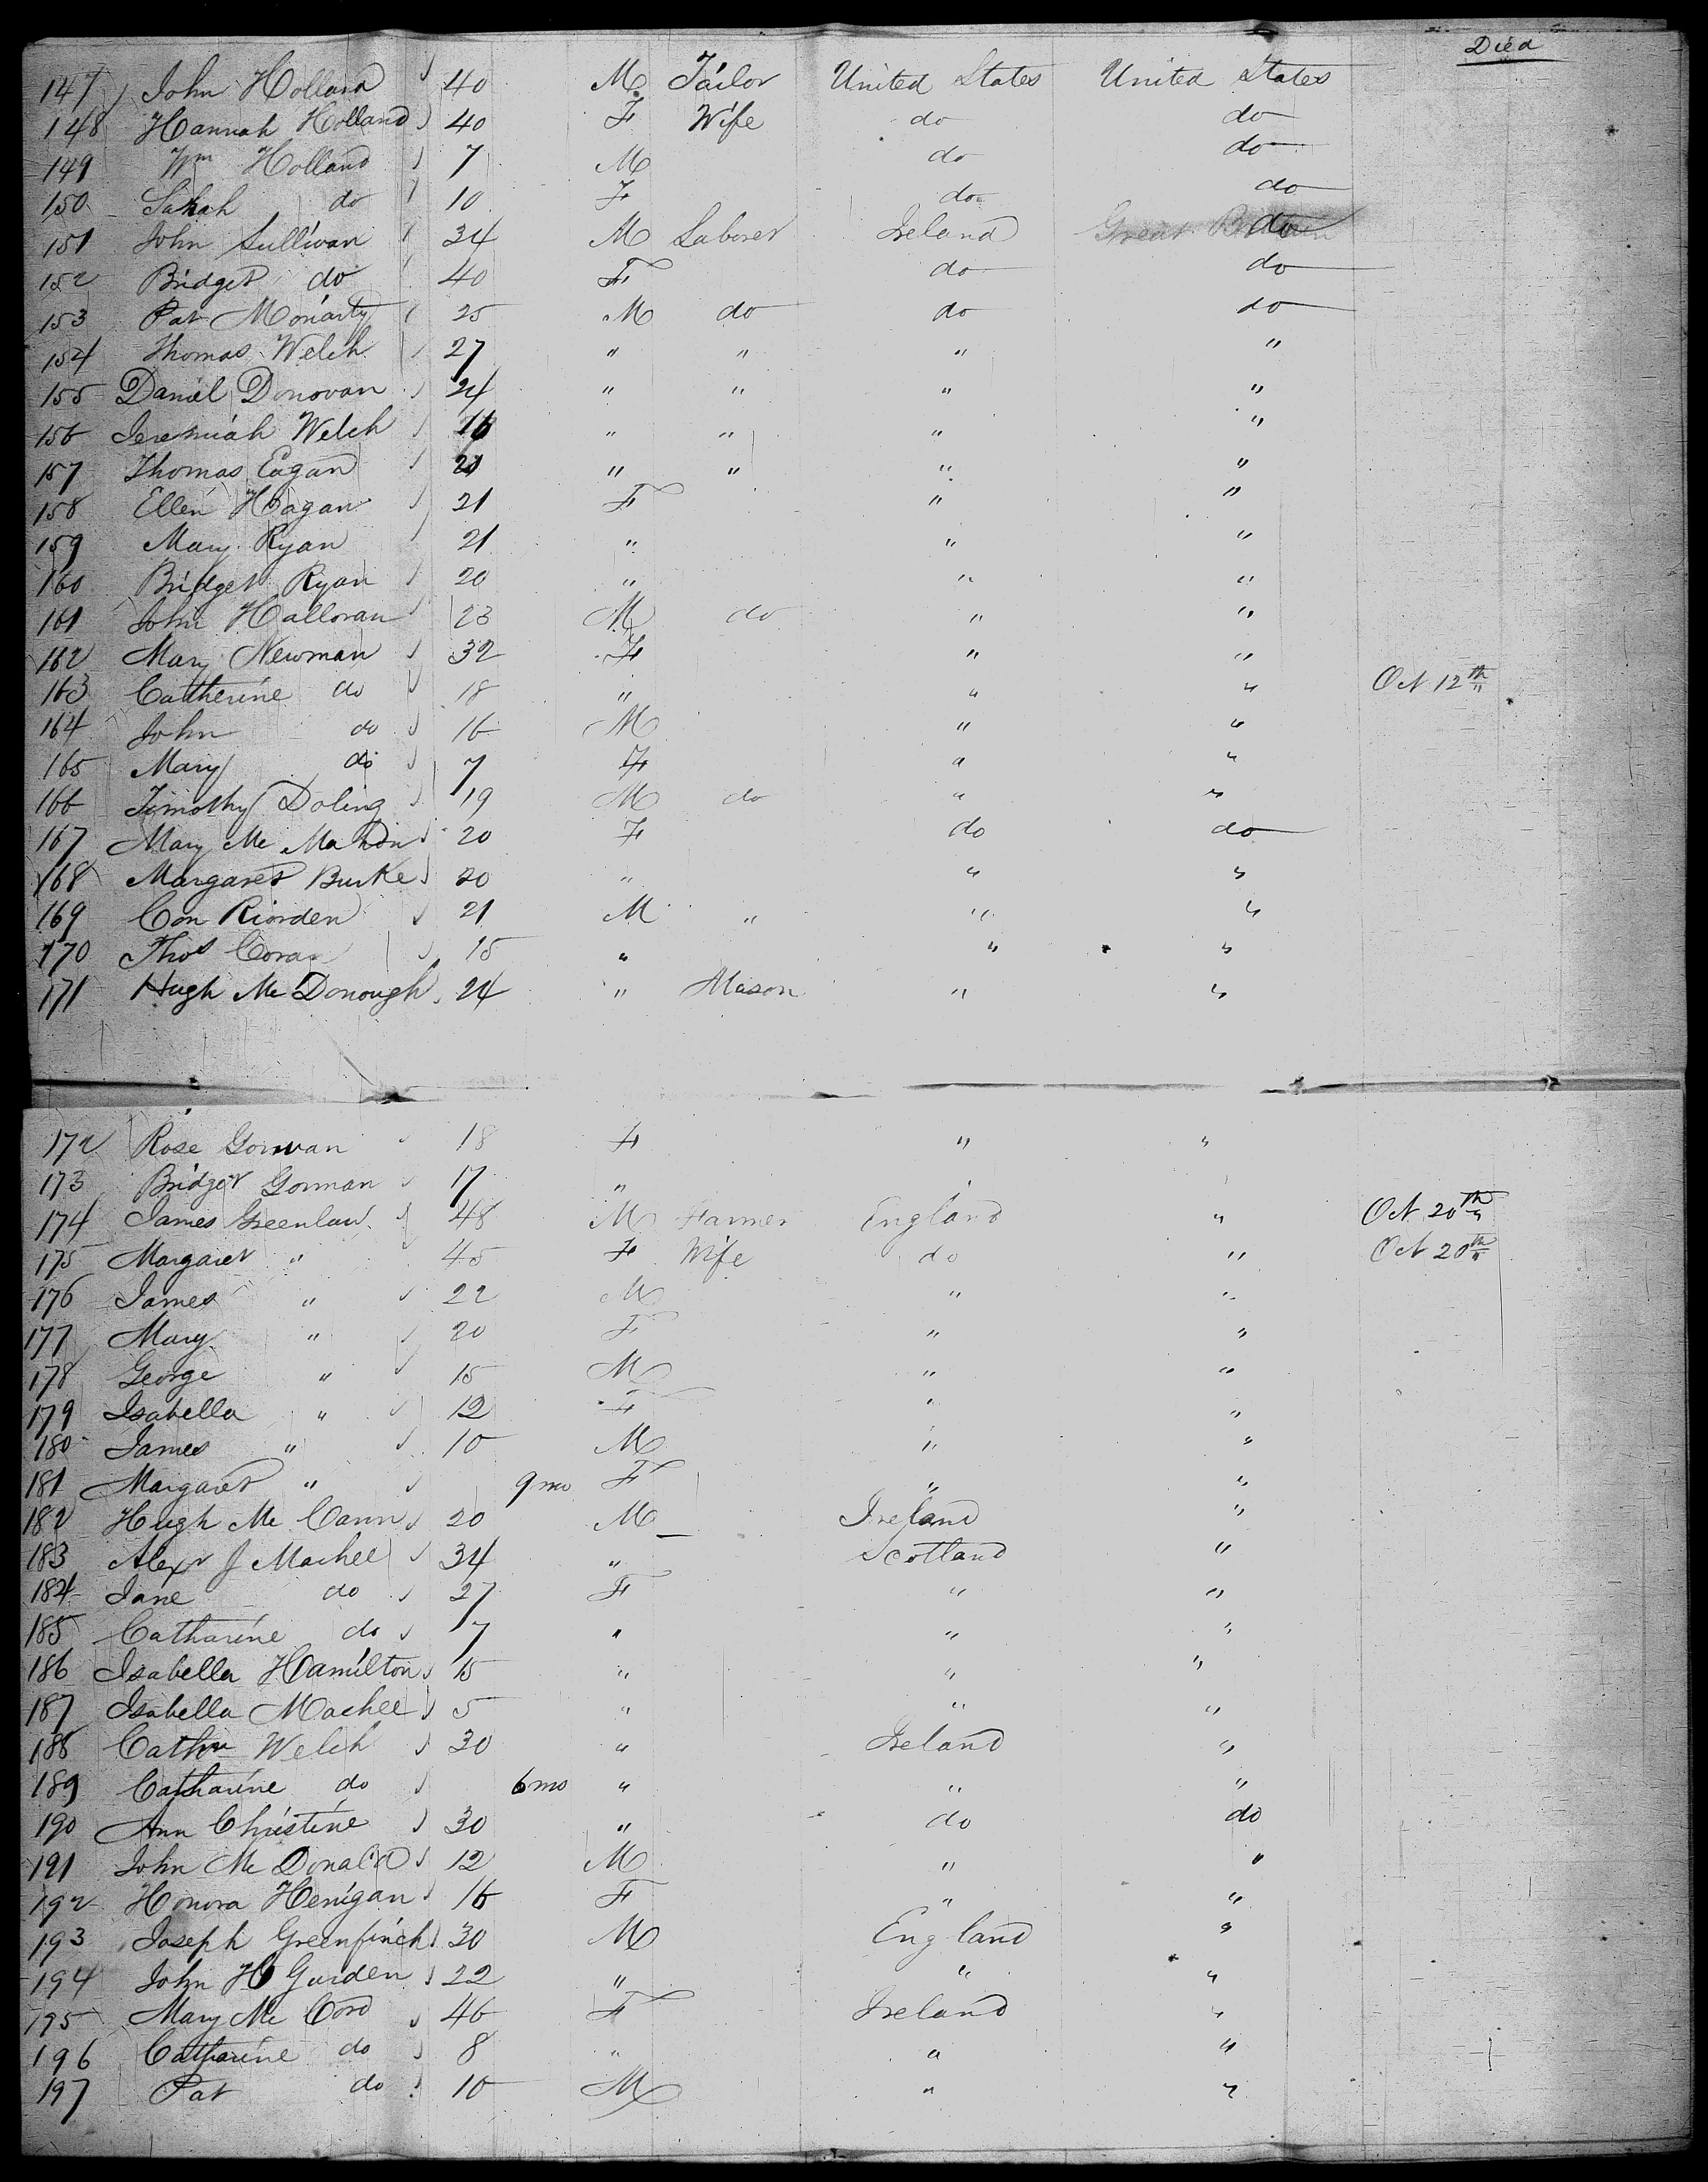 Died
147 John Holland 40 M Tailor United States United States
148 Hannah Holland 40 F Wife do do
149 Wm Holland 7 M do do
150 Sarah do 10 F do do
151 John Sullivan 34 M Laborer Ireland Great Britain do
152 Bridget do 40 F do do
153 Pat Moriarty 25 M do do do
154 Thomas Welch 27 " " " "
155 Daniel Donovan 24 " " " "
156 Jeremiah Welch 16 " " " "
157 Thomas Eagan 21 " " " "
158 Ellen Hagan 21 F " "
159 Mary Ryan 21 " " "
160 Bridget Ryan 20 " " "
161 John Halloran 23 M do " "
162 Mary Newman 32 F " "
163 Catherine do 18 " " " Oct 12th
164 John do 16 M " "
165 Mary do 7 F " "
166 Timothy Doling 19 M do " "
167 Mary Mc Mahon 20 F do do
168 Margaret Burke 20 " " "
169 Con Riorden 21 M " " "
170 Thos Coran 15 " " "
171 Hugh Mc Donough 24 " Mason " "
172 Rose Gorman 18 F " "
173 Bridget Gorman 17 " "
174 James Greenlaw 48 M Farmer England " Oct 20th
175 Margaret " 45 F Wife do " Oct 20th
176 James " 22 M " "
177 Mary " 20 F " "
178 George " 15 M " "
179 Isabella " 12 F " "
180 James " 10 M " "
181 Margaret " 9 mo F " "
182 Hugh Mc Cann 20 M Ireland "
183 Alexr J Machee 34 " Scotland "
184 Jane do 27 F " "
185 Catharine do 7 " " "
186 Isabella Hamilton 15 " " "
187 Isabella Machee 5 " " "
188 Cathn Welch 30 " Ireland "
189 Catharine do 6 mo " " "
190 Ann Christine 30 " do do
191 John Mc Donald 12 M " "
192 Honora Henigan 16 F " "
193 Joseph Greenfinch 30 M England "
194 John H Gurden 22 " " "
195 Mary Mc Cord 46 F Ireland "
196 Catharine do 8 " " "
197 Pat do 10 M " "